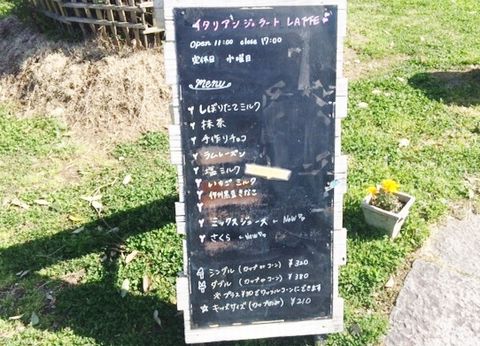 イタリアンジェラート LATTE
open 11:00 close 17:00
定休日 水曜日
menu
しぼりたてミルク
抹茶
手作りチョコ
ラムレーズン
塩ミルク
いちごミルク
伊州黒豆きなこ
ミックスジュース ← New
さくら ← New
シングル (カップ or コーン) ¥320
ダブル (カップ or コーン) ¥380
※プラス¥30でワッフルコーンにできます
☆ キッズサイズ (カップのみ) ¥210